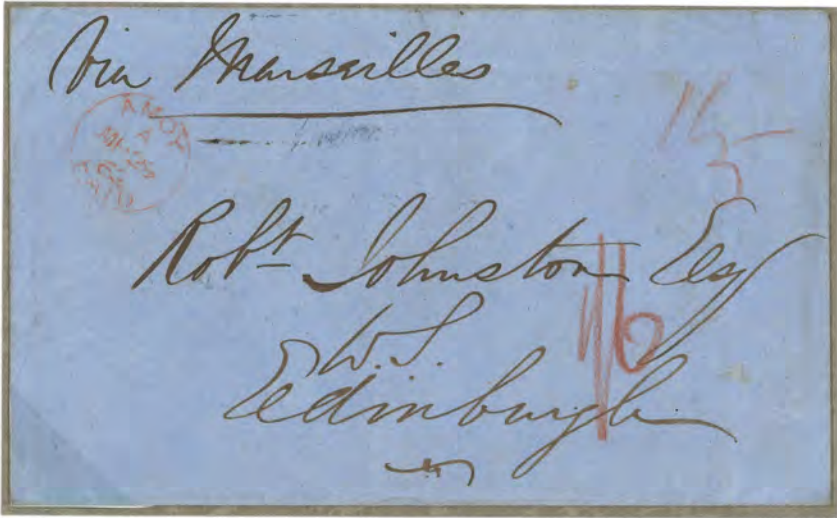 Via Marseilles
AMOY
A
PAID
1/5
Robt Johnston Esq
1/6
W.S.
Edinburgh